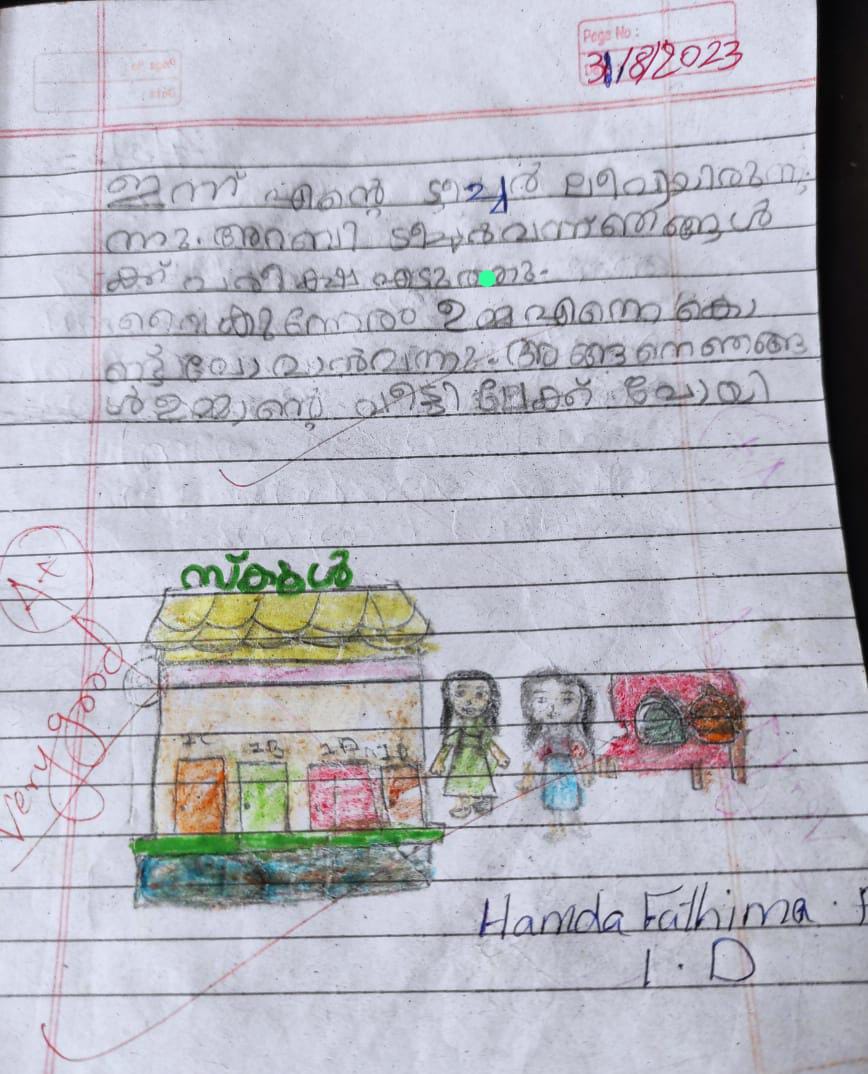 Page No :
31/8/2023
ഇന്ന് എന്റെ ടീച്ചർ ലീവായിരുന്നു
ന്നു. അറബി ടീച്ചർ വന്ന് ഞങ്ങൾ
ക്ക് പരീക്ഷ എടുത്തു.
വൈകുന്നേരം ഉമ്മ എന്നെ കൊ
ണ്ട് പോവാൻ വന്നു. അങ്ങനെ ഞങ്ങ
ൾ ഉമ്മാന്റെ വീട്ടിലേക്ക് പോയി
A+
Very good
സ്കൂൾ
1C 1B 1A
Hamda Fathima
1. D